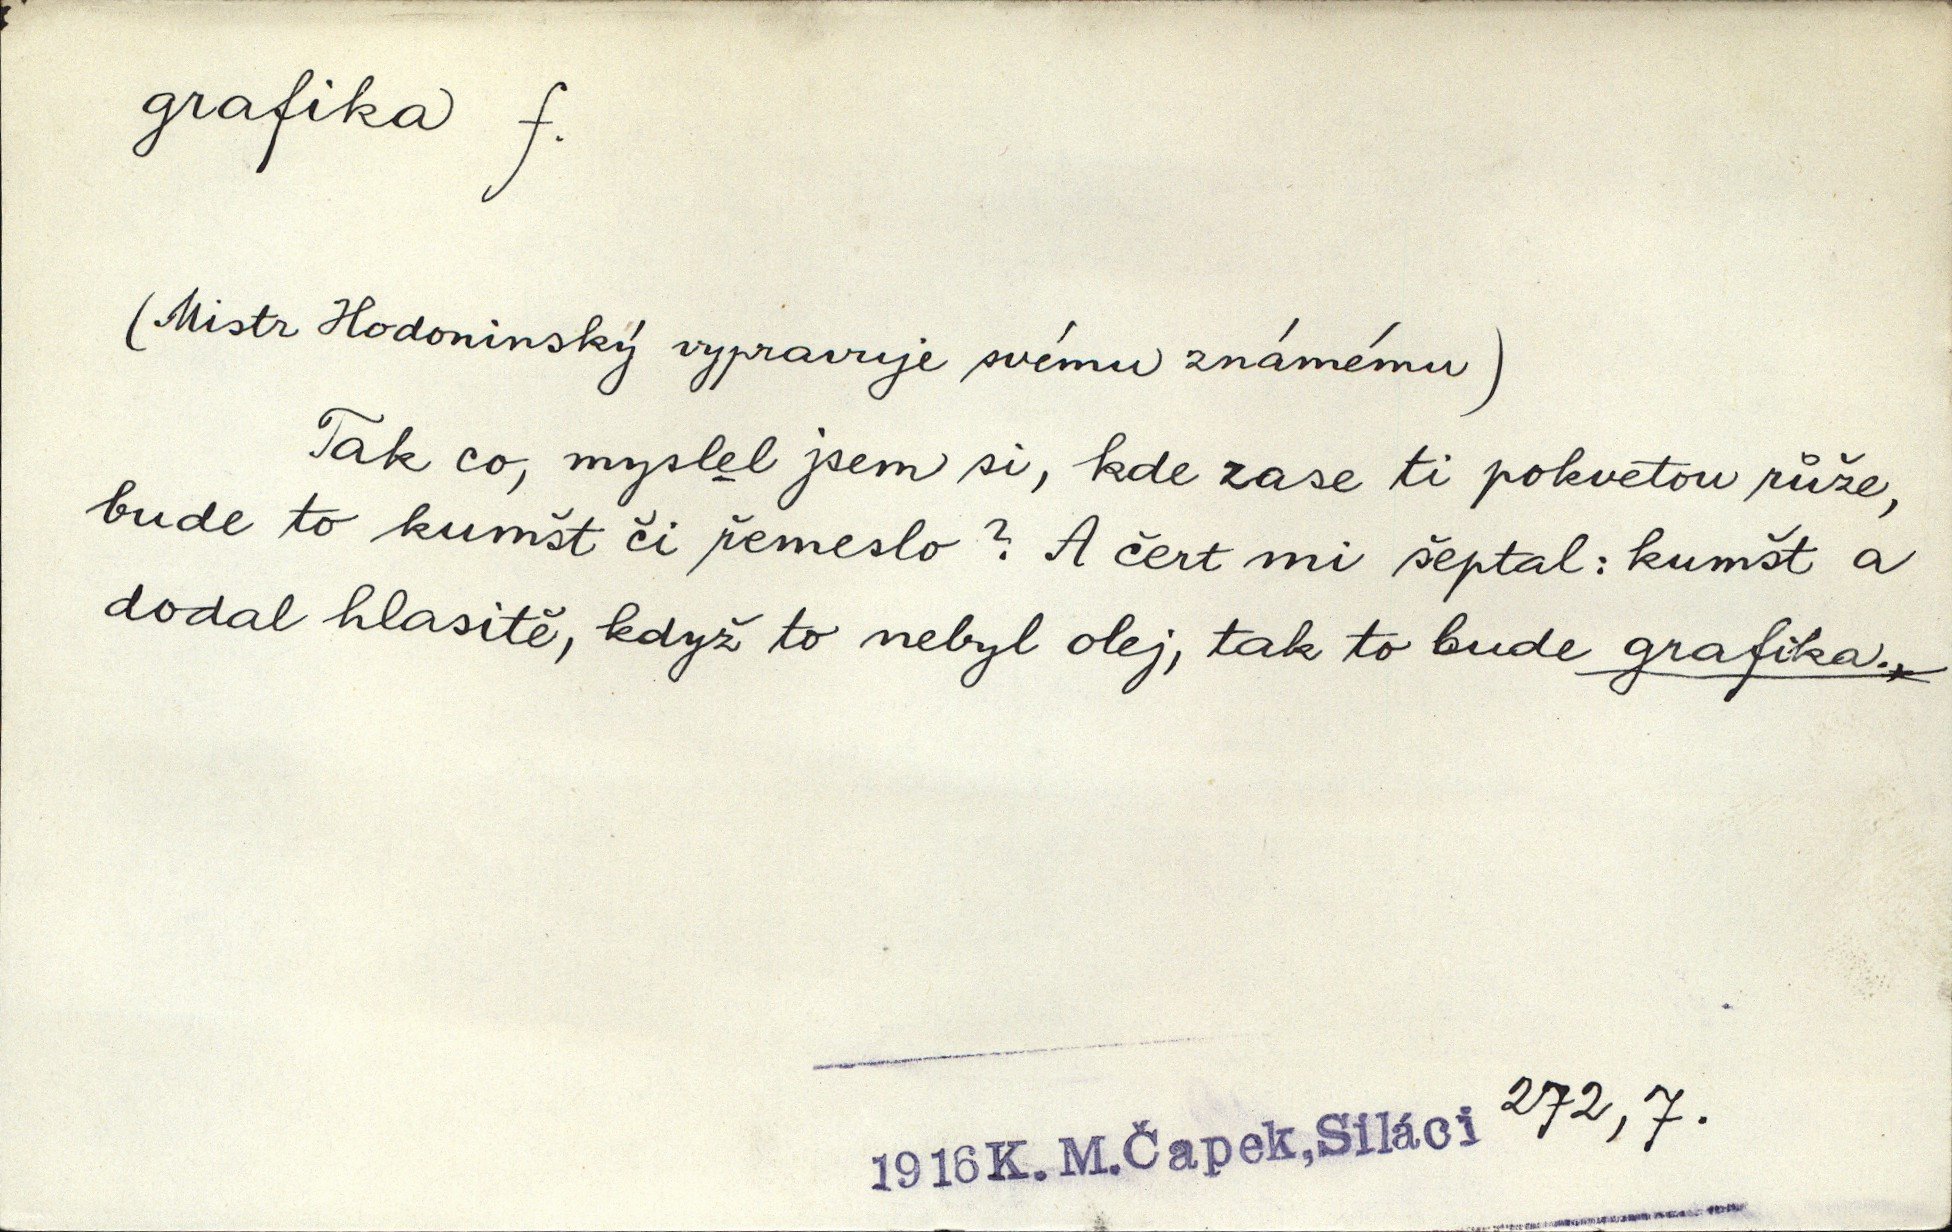 grafika f.
(Mistr Hodoninský vypravuje svému známému)
Tak co, myslel jsem si, kde zase ti pokvetou růže,
bude to kumšt či řemeslo? A čert mi šeptal: kumšt a
dodal hlasitě, když to nebyl olej, tak to bude grafika.
272, 7.
1916 K. M. Čapek, Siláci